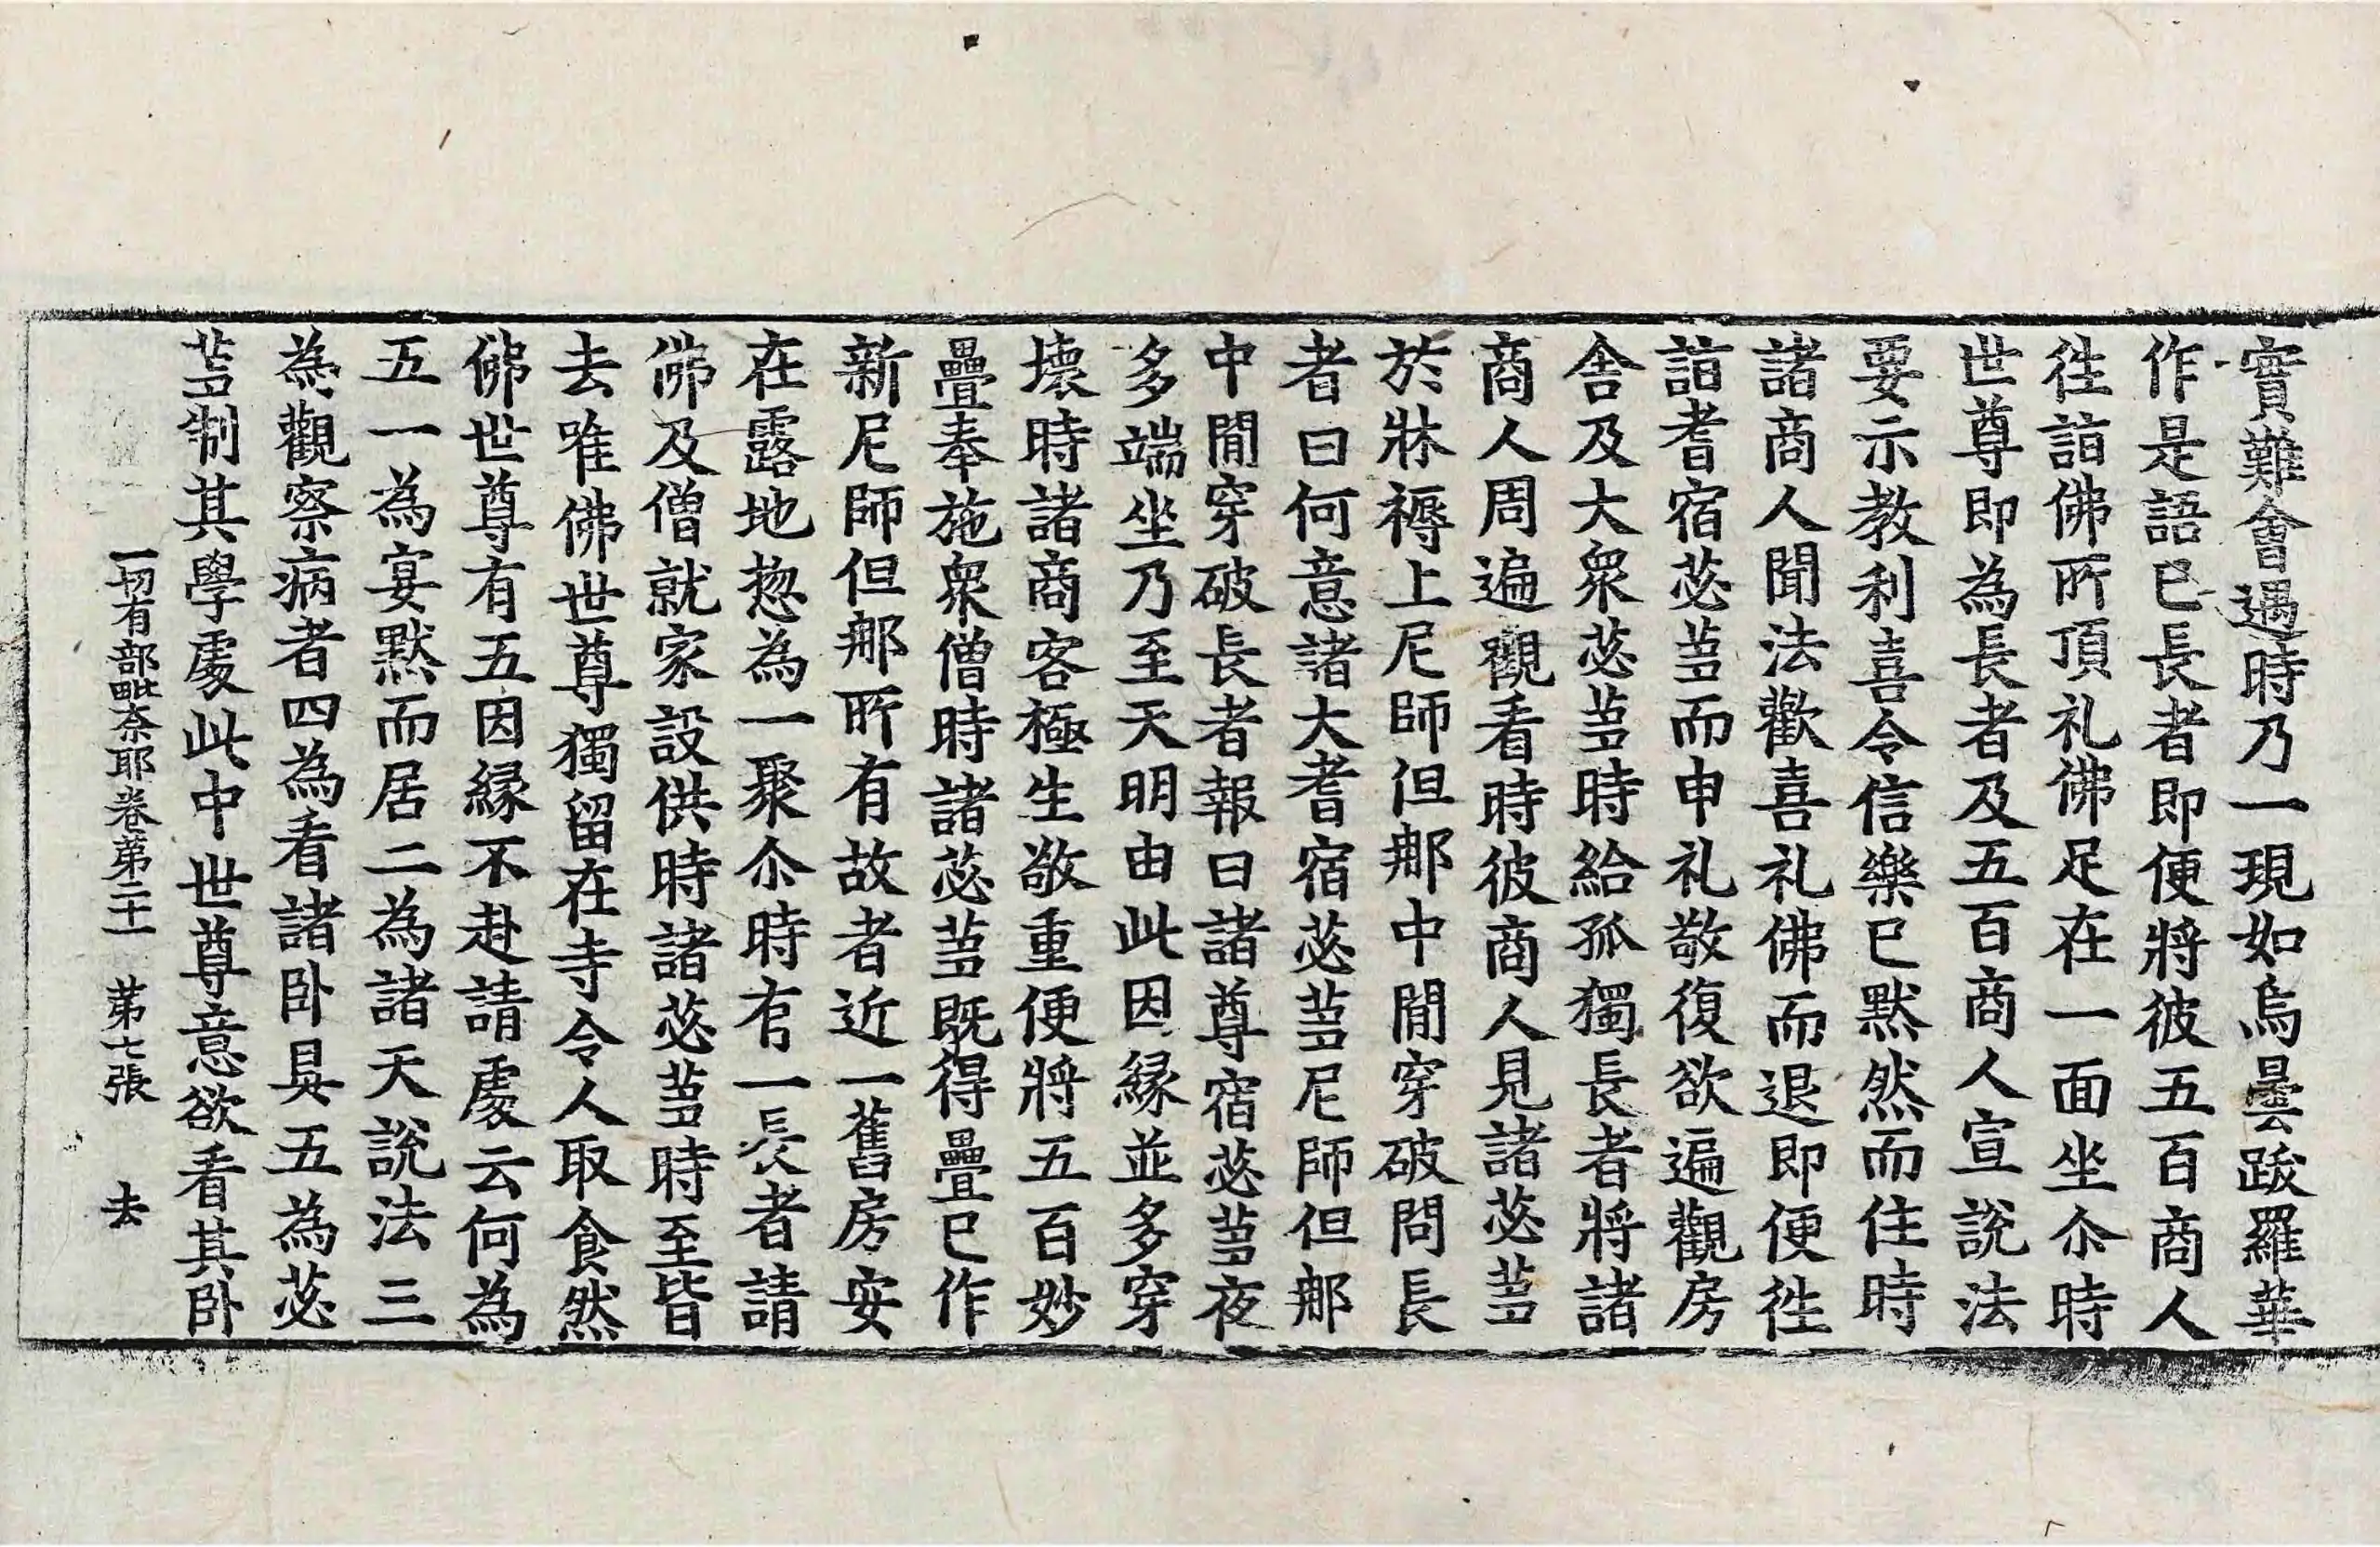 實難會遇時乃一現如烏曇跋羅華
作是語已長者即便將彼五百商人
徃詣佛所頂礼佛足在一面坐尒時
世尊即為長者及五百商人宣說法
要示教利喜令信樂已黙然而住時
諸商人聞法歡喜礼佛而退即便徃
詣耆宿苾蒭而申礼敬復欲遍觀房
舍及大衆苾蒭時給孤獨長者將諸
商人周遍觀看時彼商人見諸苾蒭
於牀褥上尼師但那中閒穿破問長
者曰何意諸大耆宿苾蒭尼師但那
中閒穿破長者報曰諸尊宿苾蒭夜
多端坐乃至天明由此因緣並多穿
壞時諸商客極生敬重便將五百妙
疊奉施衆僧時諸苾蒭既得疊已作
新尼師但那所有故者近一舊房安
在露地惣為一聚尒時有一長者請
佛及僧就家設供時諸苾蒭時至皆
去唯佛世尊獨留在寺令人取食然
佛世尊有五因緣不赴請處云何為
五一為宴黙而居二為諸天說法三
為觀察病者四為看諸卧具五為苾
蒭制其學處此中世尊意欲看其卧
一切有部毗奈耶卷第二十一 第七張 去